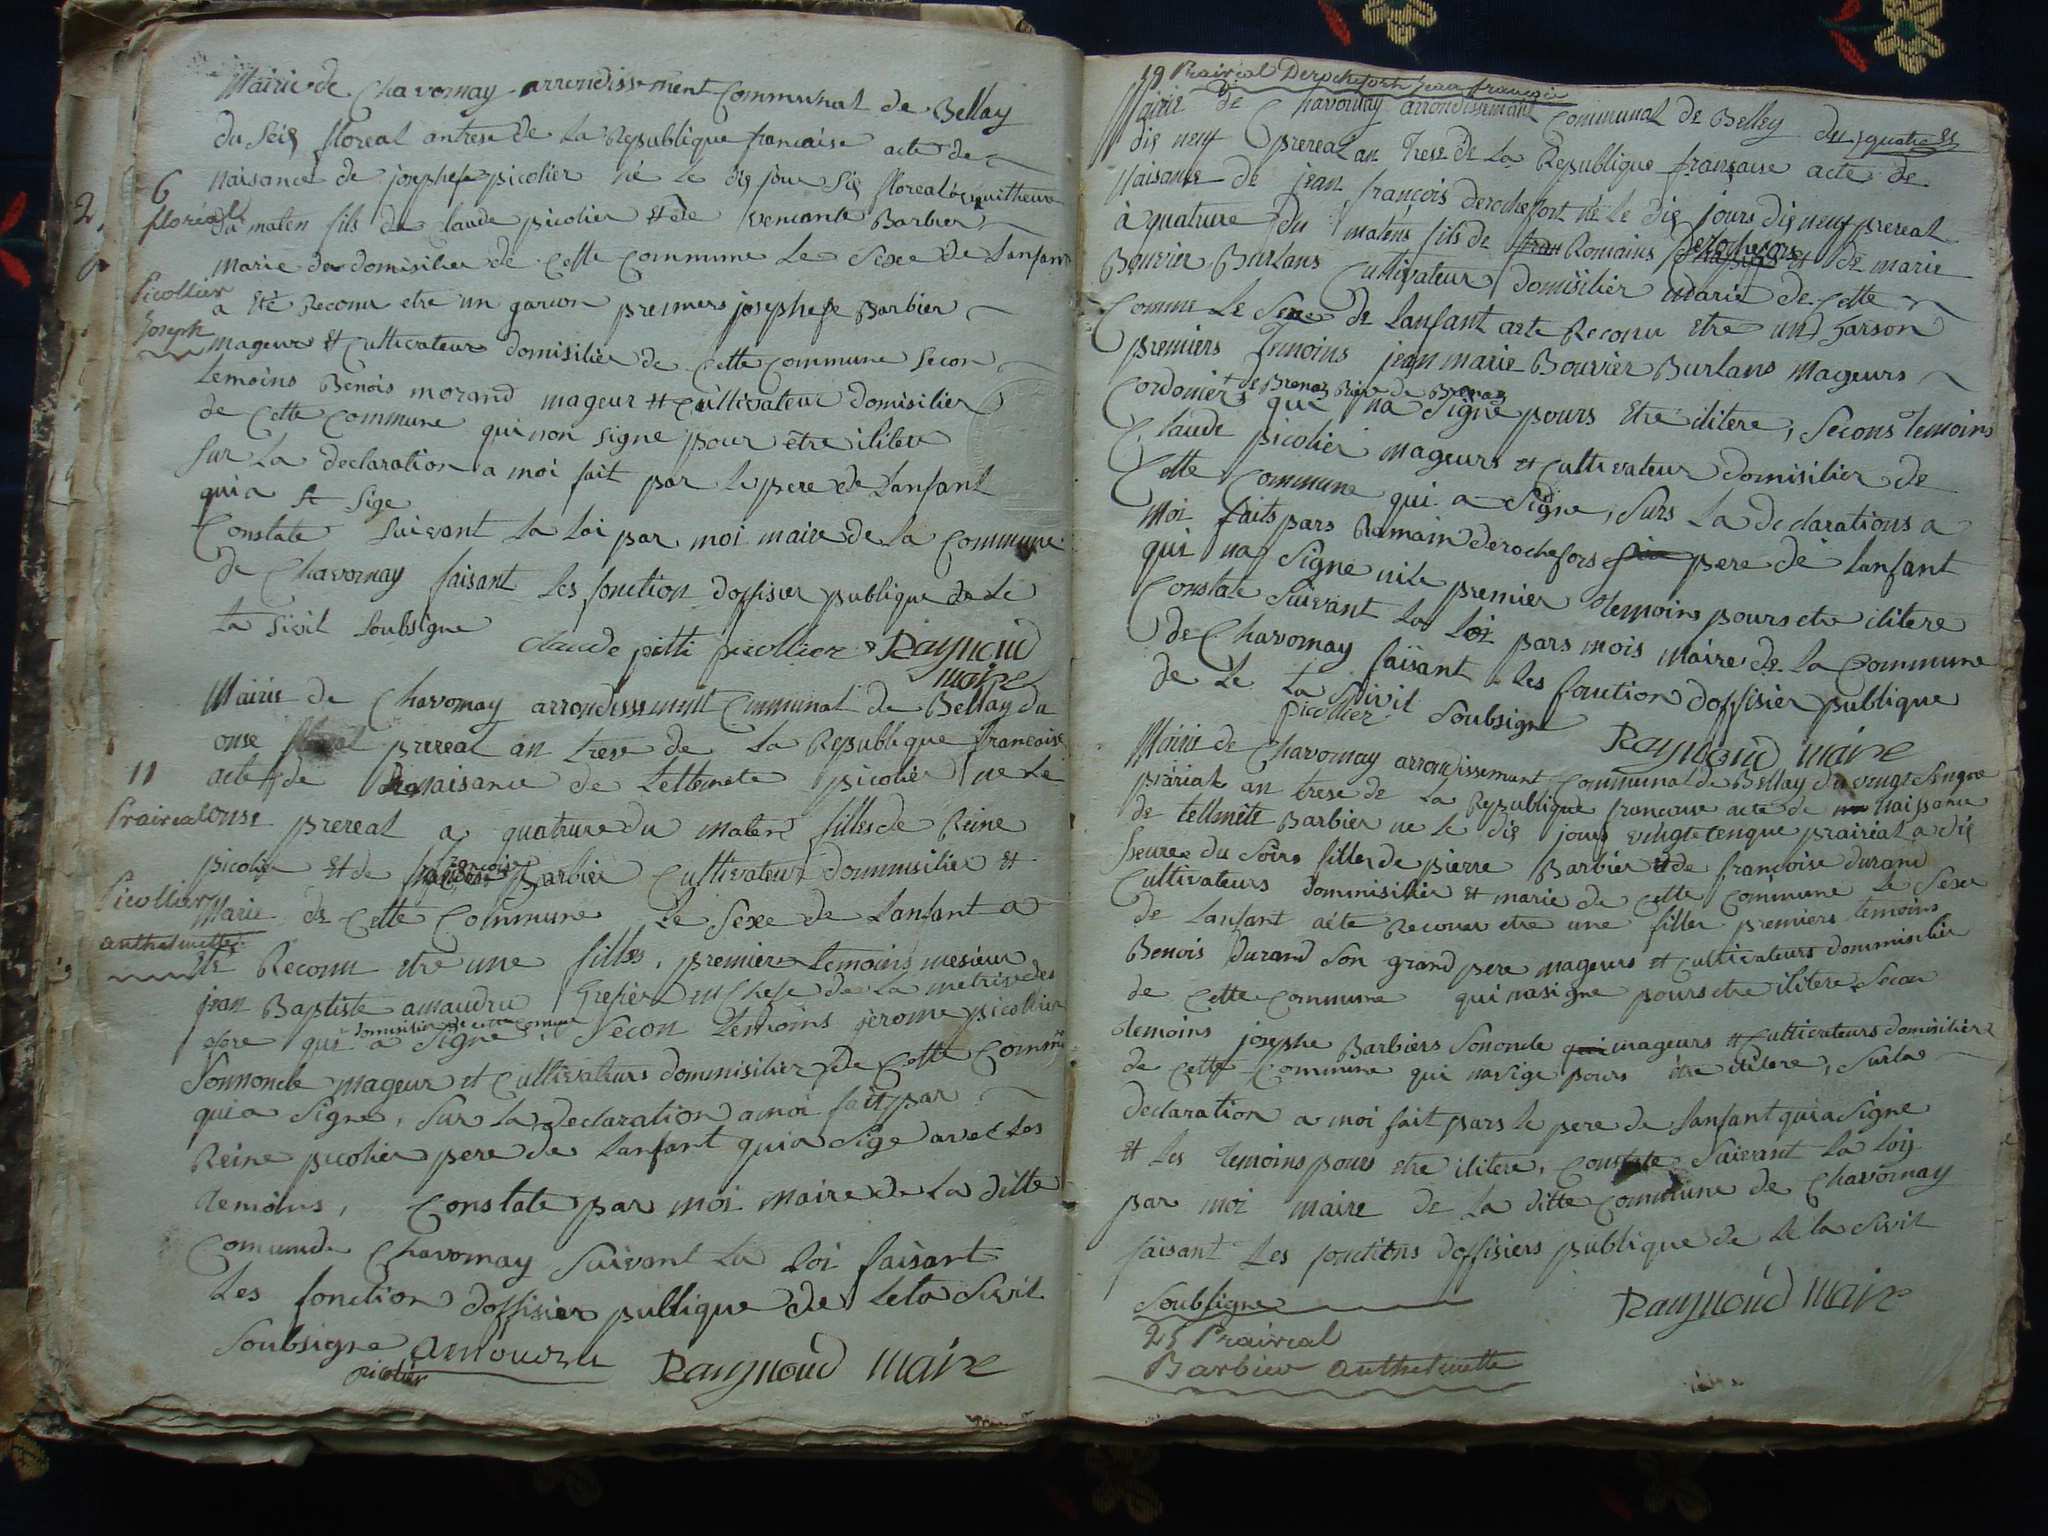 Mairie de Chavornay arrondissement Communal de Bellay
du Seis floreal an trese de La Republique francaise acte de
naisance de josephe picolier né Le dis jour Sis floreal
du maten fils de Claude picolier et de Barbier
marie de domisilier de Cette Commune Le Sexe de Lanfant
a été Reconu etre un garcon premiers josephe Barbier
mageur et Cultivateur domisilier de Cette Commune Secon
temoins Benois morand mageur et Cultivateur domisilier
de Cette Commune qui non signe pour etre ilitere
Sur La declaration a moi fait par le pere de Lanfant
qui a Sige
Constate Suivant La Loi par moi maire de La Commune
de Chavornay faisant Les fonction doffisier publique de Le
ta Sivil Soubsigne
Claude picollier Raymond
maire
6
floréal
Picollier
Joseph
Mairie de Chavornay arrondissement Communal de Bellay du
onse prereal an trese de La Republique francaise
acte de naisance de Lettemete picolier ne Le
onse prereal a quatrure du maten filles de Reine
picolier et de francoise Barbier Cultivateur dommisilier et
Marie de Cette Commune Le Sexe de Lanfant a
été Reconu etre une filles, premier temoins mesieur
jean Baptiste amaudru Grefier en Chefe de La metrise des
domisilier de cette Comune
qui a Signe, Secon temoins jerome picollier
Sonnonde mageur et Cultivateurs dommisilier de Cette Comme
qui a Signe, Sur La declaration a moi fait par
Reine picolier pere de Lanfant qui a Sige avec Les
temoins, Constate par moi maire de La ditte
Comunde Chavornay Suivant La Loi faisant
Les fonction doffisier publique de Leta Sivil
Soubsigne amoudru Raymond Maire
picolier
11
Prairial
Picollier
anthelmette
19 Prairial Derochefort jean françois
Mairie de Chavornay arrondissemant Communal de Belley du
dis neuf prereal an Trese De La Republique française acte de
Naisance de jean françois derochefort né Le dis jours dis neuf prereal
à quatrure du maténs fils de Romains Derochefors et de marie
Bouvier Burlans Cultivateur domisilier marie de Cette
Comme Le Sexe de Lanfant aete Reconu etre un Garson
premiers Temoins jean marie Bouvier Burlans Mageurs
Cordonier de Brenaz
que na Signe pours etre ilitere, Secons temoins
Claude picolier mageurs et Cultivateur domisilier de
Cette Commune qui a Signe, Surs La declarations a
Moi faits pars Romain derochefors pere de Lanfant
qui na Signe ni Le premier temoins pours etre ilitere
Constate Suivant La Loi pars mois maire de La Commune
de Chavornay faisant Les fonction doffisier publique
de Le ta Sivil Soubsigne
picollier Raymond Maire
Mairie de Chavornay arrondissemant Communal de Bellay du vingt Sengue
prairial an trese de La Republique francaise acte de naissance
de tellmete Barbier ne le dis jours vingtcenque prairial a dis
heures du Soirs filles de pierre Barbier et de françoise durand
Cultivateurs dommisilier et marie de Cette Commune Le Sexe
de Lanfant aéte Reconu etre une filles premiers temoins
Benois durand Son grand pere mageurs et Cultivateurs dommisilier
de Cette Commune qui nasigne pours etre ilitere Secon
temoins josephe Barbiers Sononde mageurs et Cultivateurs domisilier
de Cette Commune qui na Sige pours etre ilitere, Sur La
declaration a moi fait pars le pere de Lanfant qui a Signe
et Les temoins pours etre ilitere, Constate Suivant La Loy
par moi maire de La ditte Commune de Chavornay
faisant Les fonctions doffisiers publique de Le ta Sivil
Soubsigne
Raymond Maire
25 Prairial
Barbier anthelmette